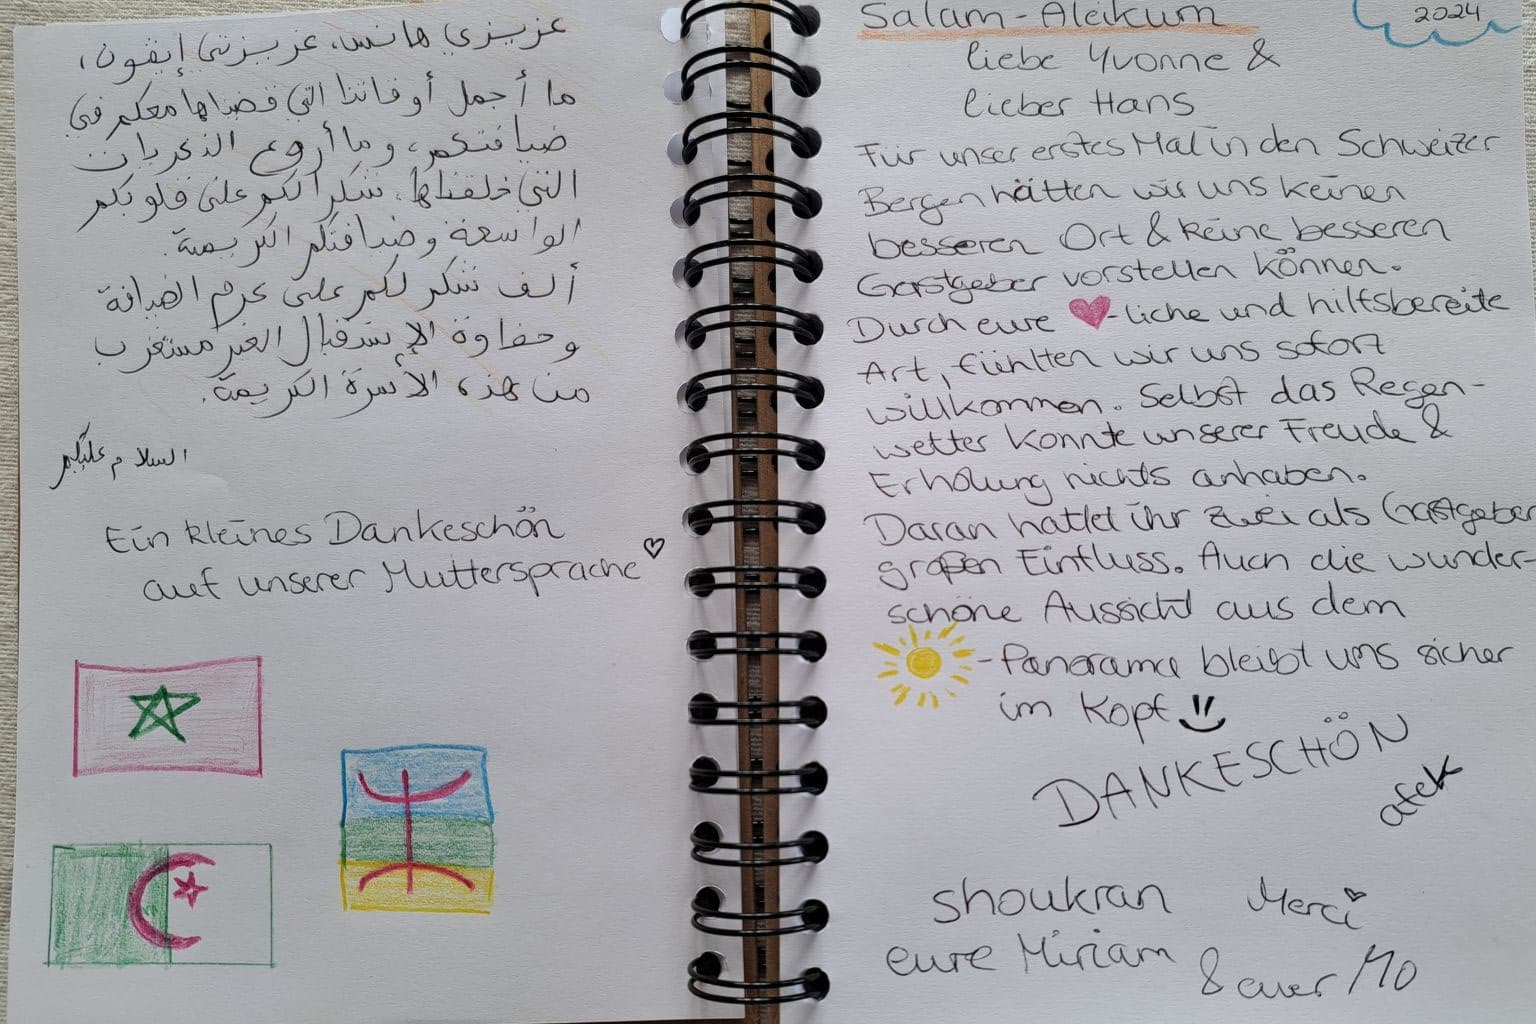 عزيزي هانس، عزيزتي إيڤون،
ما أجمل أوقاتنا التي قضيناها معكم في
ضيافتكم، وما أروع الذكريات
التي خلقناها. شكرا لكم على قلوبكم
الواسعة وضيافتكم الكريمة.
ألف شكر لكم على كرم الضيافة
وحفاوة الإستقبال الغير مستغرب
من هذه الأسرة الكريمة.
السلام عليكم
Ein kleines Dankeschön
auf unserer Muttersprache
Salam-Aleikum
2024
liebe Yvonne &
lieber Hans
Für unser erstes Mal in den Schweizer
Bergen hätten wir uns keinen
besseren Ort & keine besseren
Gastgeber vorstellen können.
Durch eure ♥-liche und hilfsbereite
Art, fühlten wir uns sofort
willkommen. Selbst das Regen-
wetter konnte unserer Freude &
Erholung nichts anhaben.
Daran hattet ihr zwei als Gastgeber
großen Einfluss. Auch die wunder-
schöne Aussicht aus dem
-Panorama bleibt uns sicher
im Kopf
DANKESCHÖN
afek
shoukran
Merci
eure Miriam
& euer Mo